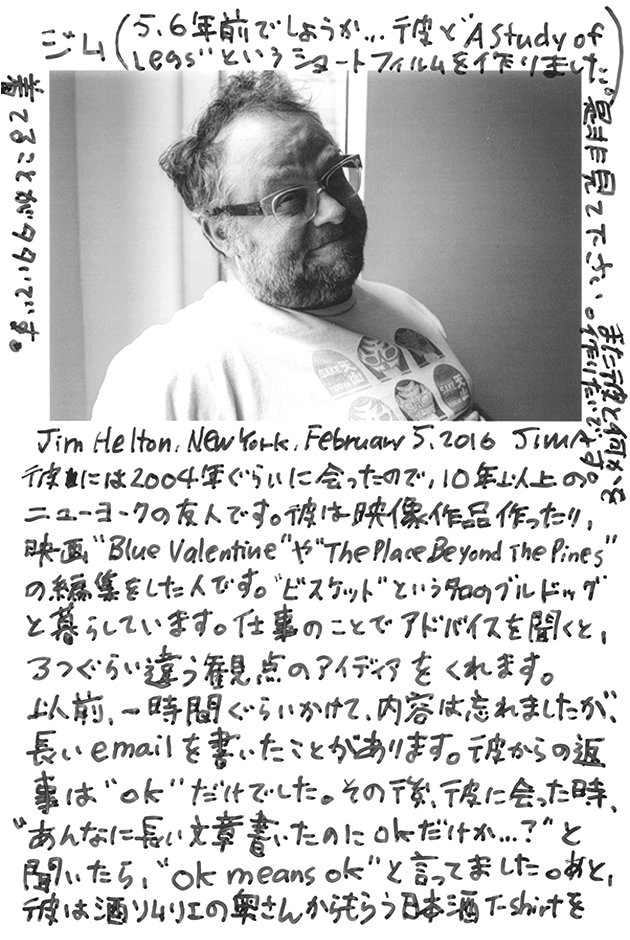 ジム (5.6年前でしょうか... 彼と"A Study of
Legs"というショートフィルムを作りました。
是非見て下さい。また彼と何かを
作りたいです。)
Jim Helton, New York, February 5, 2016 Jim
彼には2004年ぐらいに会ったので、10年以上の
ニューヨークの友人です。彼は映像作品作ったり、
映画"Blue Valentine"や"The Place Beyond The Pines"
の編集をした人です。"ビスケット"という名のブルドッグ
と暮らしています。仕事のことでアドバイスを聞くと、
3つぐらい違う観点のアイディアをくれます。
以前、一時間ぐらいかけて、内容は忘れましたが、
長いemailを書いたことがあります。彼からの返
事は"ok"だけでした。その後、彼に会った時、
"あんなに長い文章書いたのにokだけか...?"と
聞いたら、"ok means ok"と言ってました。あと、
彼は酒ソムリエの奥さんからもらう日本酒T-shirtを
着てることが多いです。
SAKE